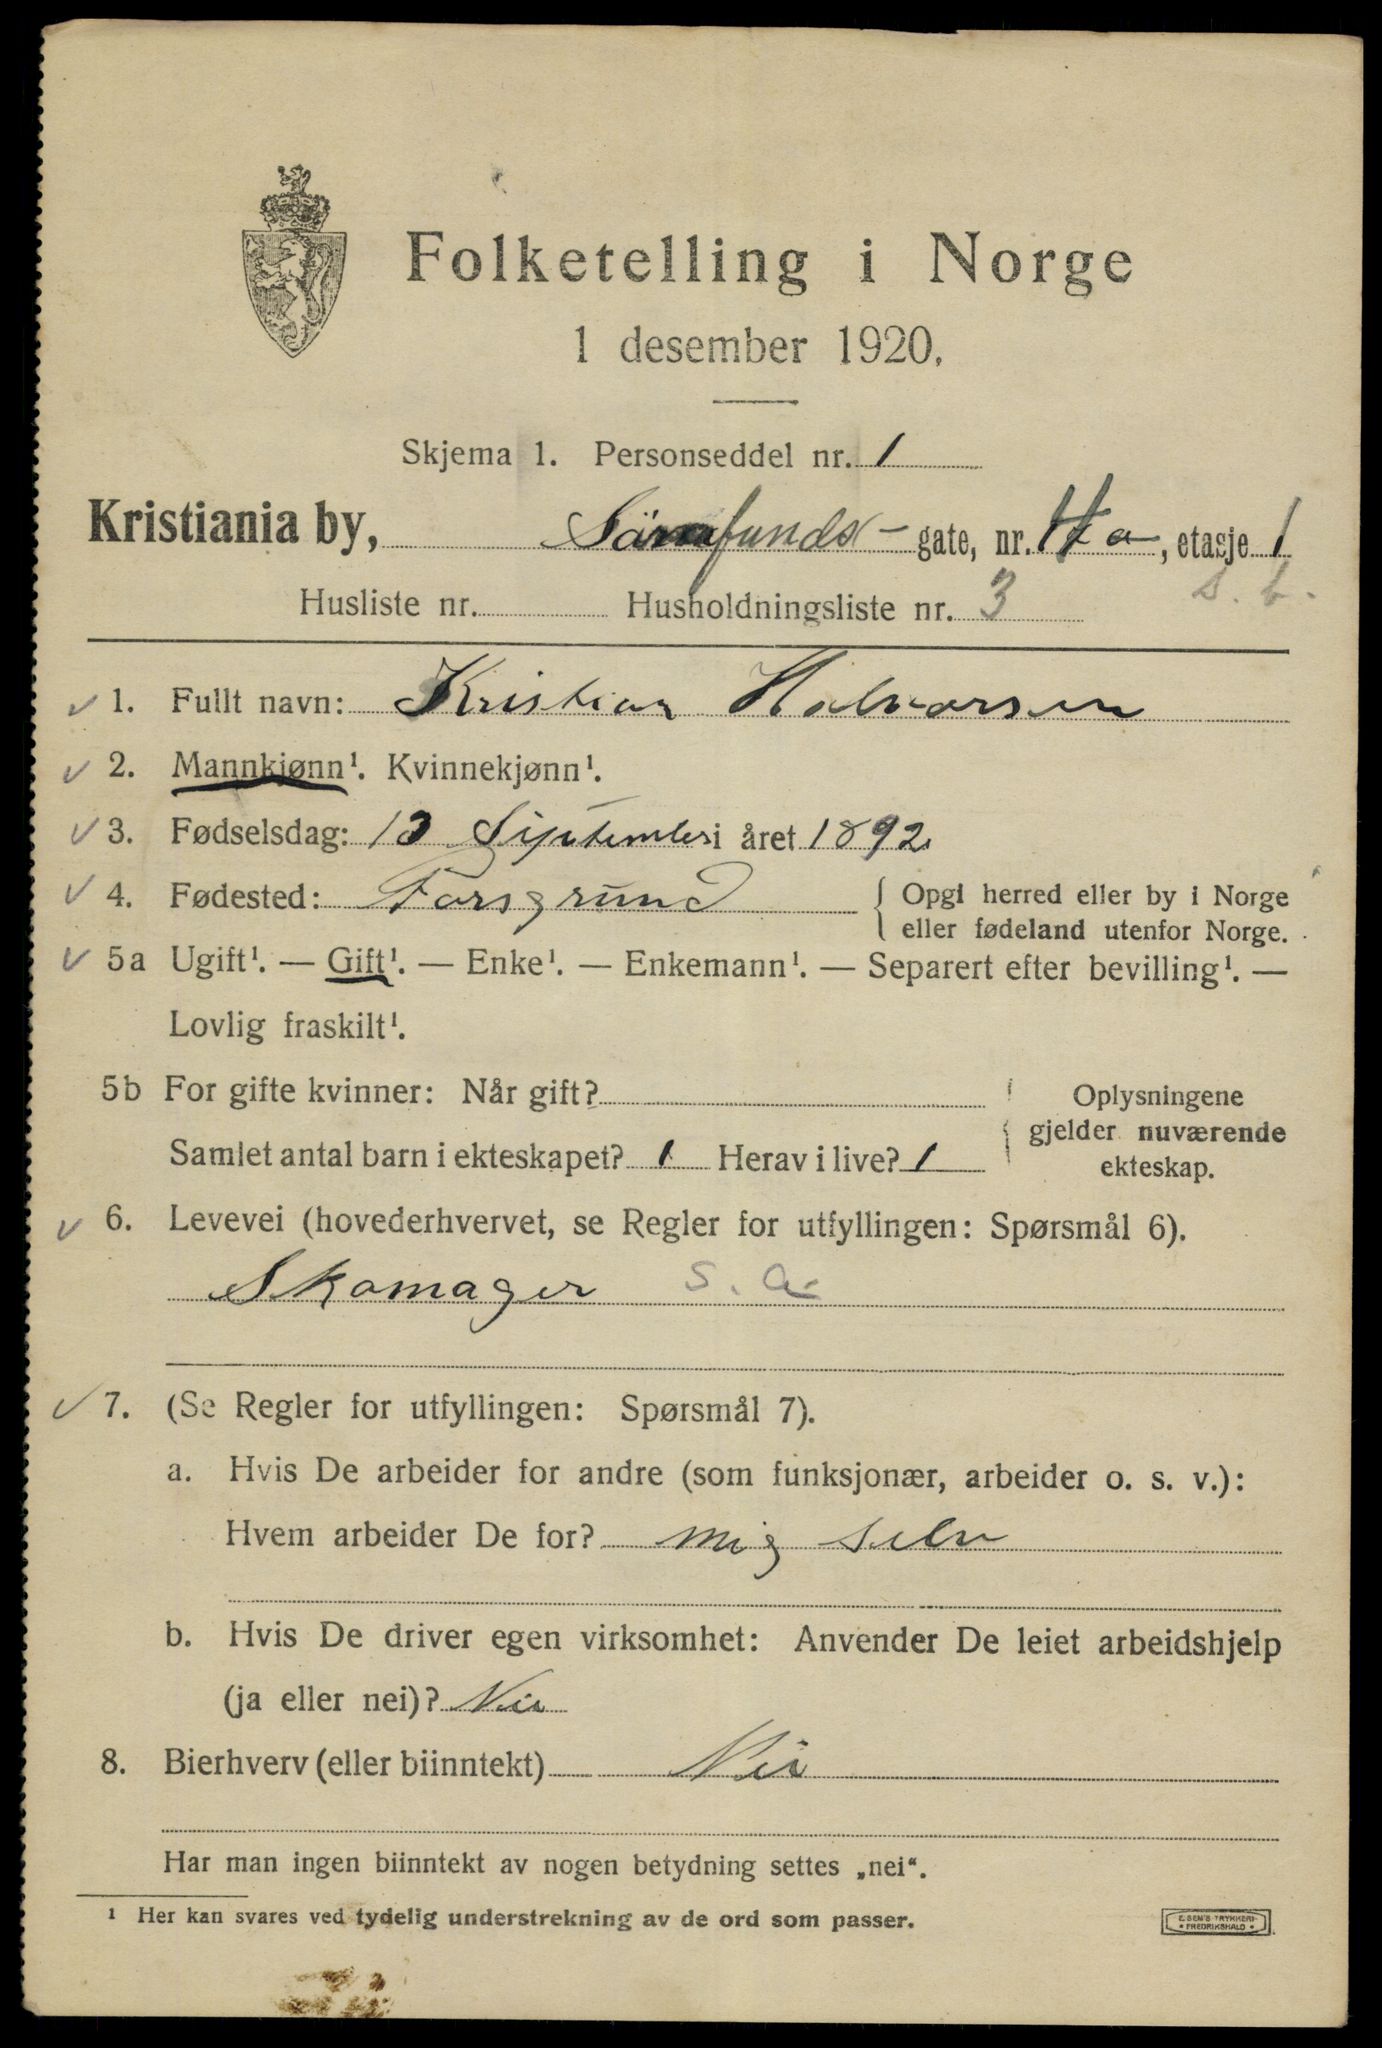 Folketelling i Norge
1 desember 1920.
Skjema 1. Personseddel nr. 1
Kristiania by, Samfunds- gate, nr. 4 a, etasje 1
Husliste nr. Husholdningsliste nr. 3 s. b.
1. Fullt navn: Kristian Halvorsen
2. Mannkjønn¹. Kvinnekjønn¹.
3. Fødselsdag: 13 September i året 1892
4. Fødested: Porsgrund { Opgi herred eller by i Norge
eller fødeland utenfor Norge.
5a Ugift¹. — Gift¹. — Enke¹. — Enkemann¹. — Separert efter bevilling¹. —
Lovlig fraskilt¹.
5b For gifte kvinner: Når gift? Oplysningene
gjelder nuværende
Samlet antal barn i ekteskapet? 1 Herav i live? 1 ekteskap.
6. Levevei (hovederhvervet, se Regler for utfyllingen: Spørsmål 6).
Skomager s. a.
7. (Se Regler for utfyllingen: Spørsmål 7).
a. Hvis De arbeider for andre (som funksjonær, arbeider o. s. v.):
Hvem arbeider De for? mig selv
b. Hvis De driver egen virksomhet: Anvender De leiet arbeidshjelp
(ja eller nei)? Nei
8. Bierhverv (eller biinntekt) Nei
Har man ingen biinntekt av nogen betydning settes „nei“.
¹ Her kan svares ved tydelig understrekning av de ord som passer.
E. SEM'S TRYKKERI
• FREDRIKSHALD •